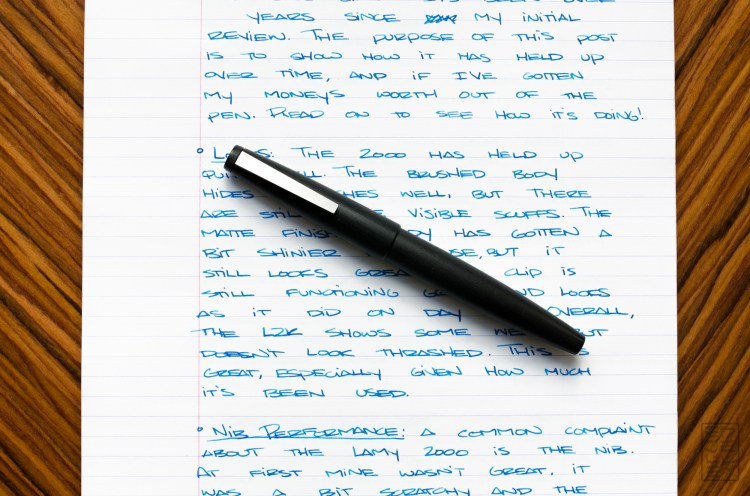 YEARS SINCE MY INITIAL
REVIEW. THE PURPOSE OF THIS POST
IS TO SHOW HOW IT HAS HELD UP
OVER TIME, AND IF I'VE GOTTEN
MY MONEYS WORTH OUT OF THE
PEN. READ ON TO SEE HOW IT'S DOING!
• THE 2000 HAS HELD UP
THE BRUSHED BODY
HIDES WELL, BUT THERE
ARE VISIBLE SCUFFS. THE
MATTE HAS GOTTEN A
BIT SHINIER BUT IT
STILL LOOKS CLIP IS
STILL FUNCTIONING LOOKS
AS IT DID ON DAY OVERALL,
THE L2K SHOWS SOME
DOESN'T LOOK THRASHED. THIS
GREAT, ESPECIALLY GIVEN HOW MUCH
IT'S BEEN USED.
• NIB PERFORMANCE: A COMMON COMPLAINT
ABOUT THE LAMY 2000 IS THE NIB.
AT FIRST MINE WASN'T GREAT. IT
WAS A BIT SCRATCHY AND THE